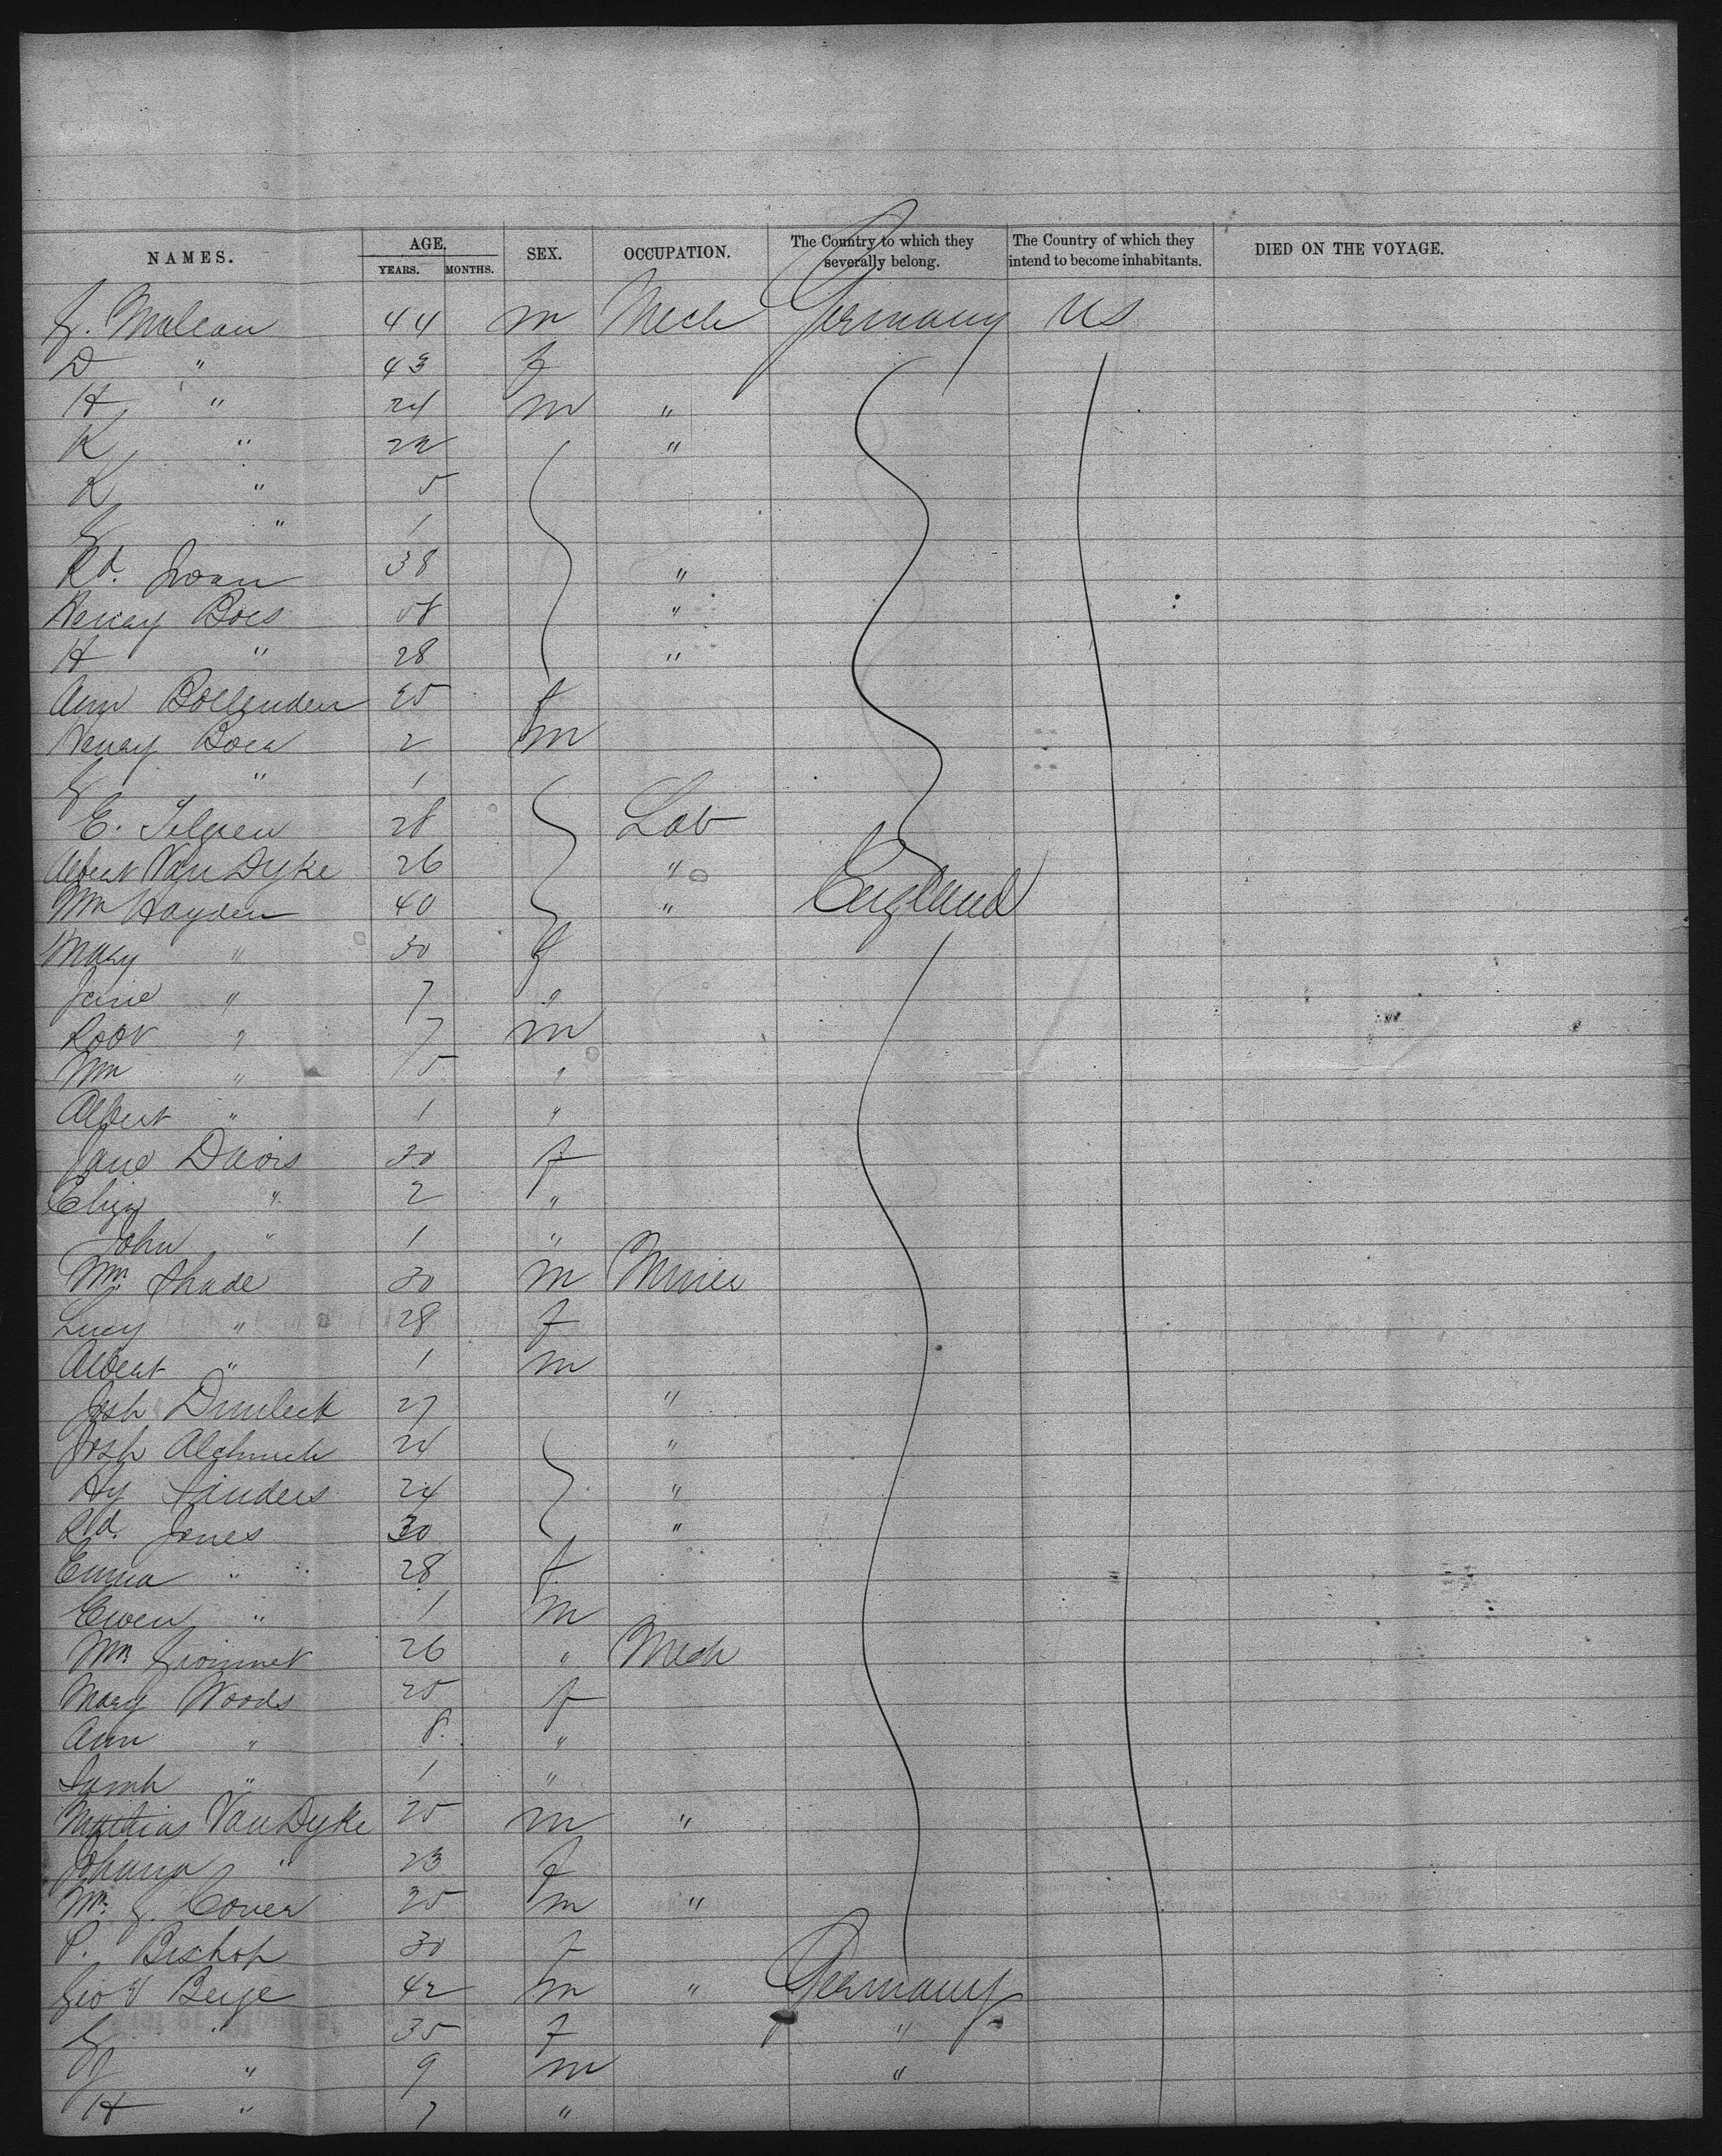 NAMES. AGE. SEX. OCCUPATION. The Country to which they severally belong. The Country of which they intend to become inhabitants. DIED ON THE VOYAGE.
YEARS. MONTHS.
44 m Mech Germany US
D " 43 f
H " 24 m "
K " 22 "
K " 5
" 1
Rd. 38 "
Henry Boes 58 "
H " 28 "
Ann 25 f
Henry 2 m
" 1
E. 28 Lab
Albert Van Dyke 26 "
Wm Hayden 40 " England
Mary " 30 f
Jane " 7 "
Robt " 7 m
Wm " 5 "
Albert " 1 "
Jane Davis 30 f
Eliza " 2 "
John " 1 "
Wm. Shade 30 m Miner
Lucy " 28 f
Albert " 1 m
Josh 27 "
Josh 24 "
Hy Sanders 24 "
Rd. Jones 30 "
Emma " 28 f
Owen " 1 m
Wm. 26 " Mech
Mary Woods 25 f
Ann " 8 "
Sarah " 1 "
Matthias Van Dyke 25 m "
Johana " 23 f
Wm. 25 m "
P. Bishop 30 f
42 m " Germany
" 35 f "
" 9 m "
H " 7 "